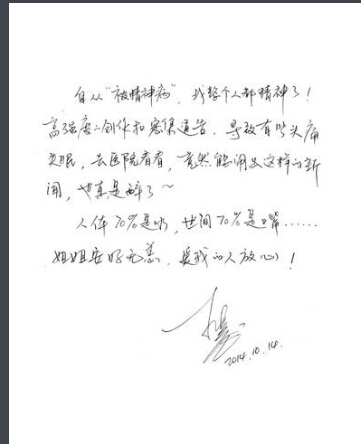 自从“被精神病”,我整个人都精神了!
高强度的创作和密集通告,导致有些头痛
失眠,去医院看看,竟然能闹出这样的新
闻,也真是醉了~
人体70%是水,世间70%是嘴……
姐姐安好无恙,爱我的人放心!
2014.10.14.